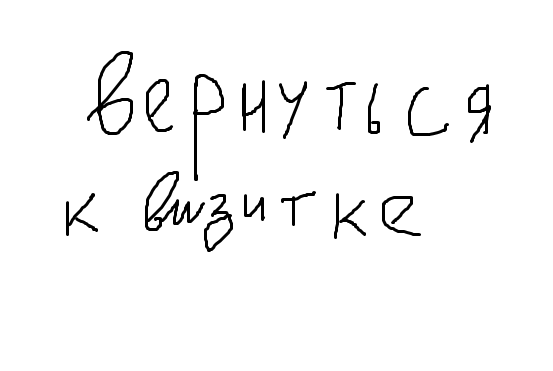 вернуться
к визитке